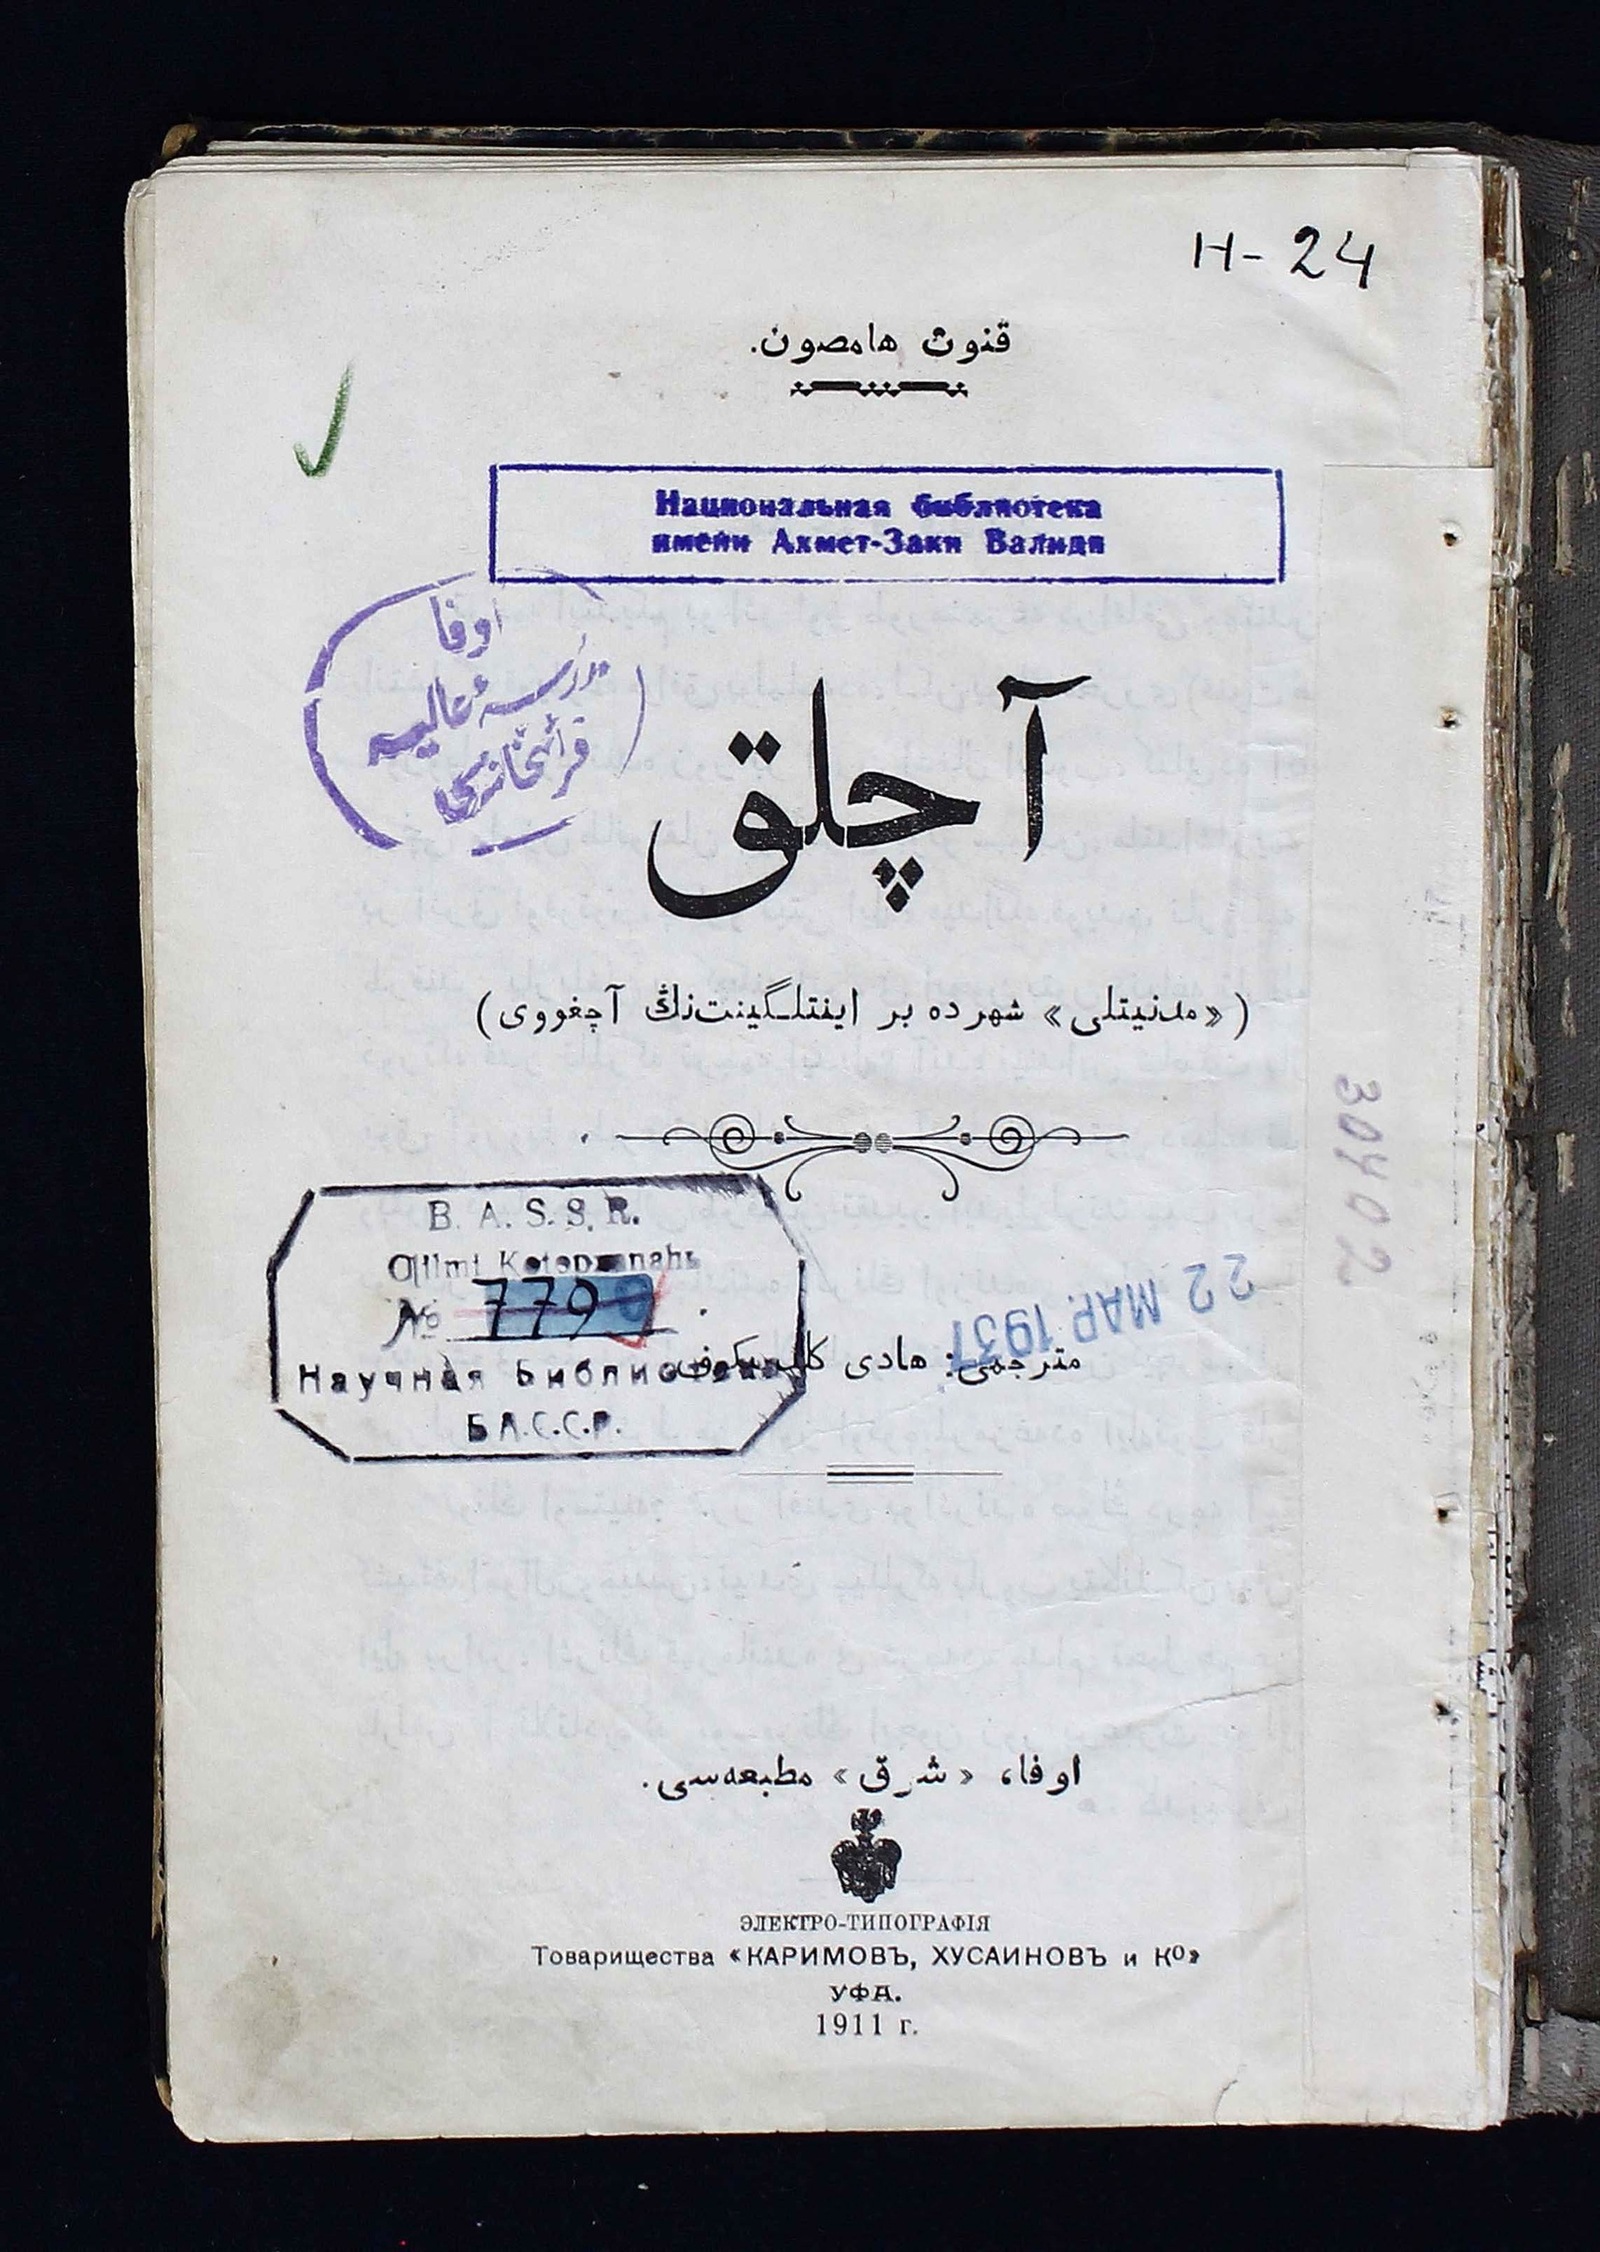 H-24
قنوت هامصون.
Национальная библиотека
имени Ахмет-Заки Валиди
اوفا
مدرسهٔ عاليه
قرائتخانه‌سی
آچلق
(«مدنيتلی» شهرده بر اينتلـگينت‌نڭ آچغووی)
B. A. S. S. R.
№ 779
Научная Библиотека
Б.А.С.С.Р.
22 МАР. 1937
30402
مترجمی: هادی
اوفا، «شرق» مطبعه‌سی.
ЭЛЕКТРО-ТИПОГРАФІЯ
Товарищества «КАРИМОВЪ, ХУСАИНОВЪ и Кº»
УФА.
1911 г.